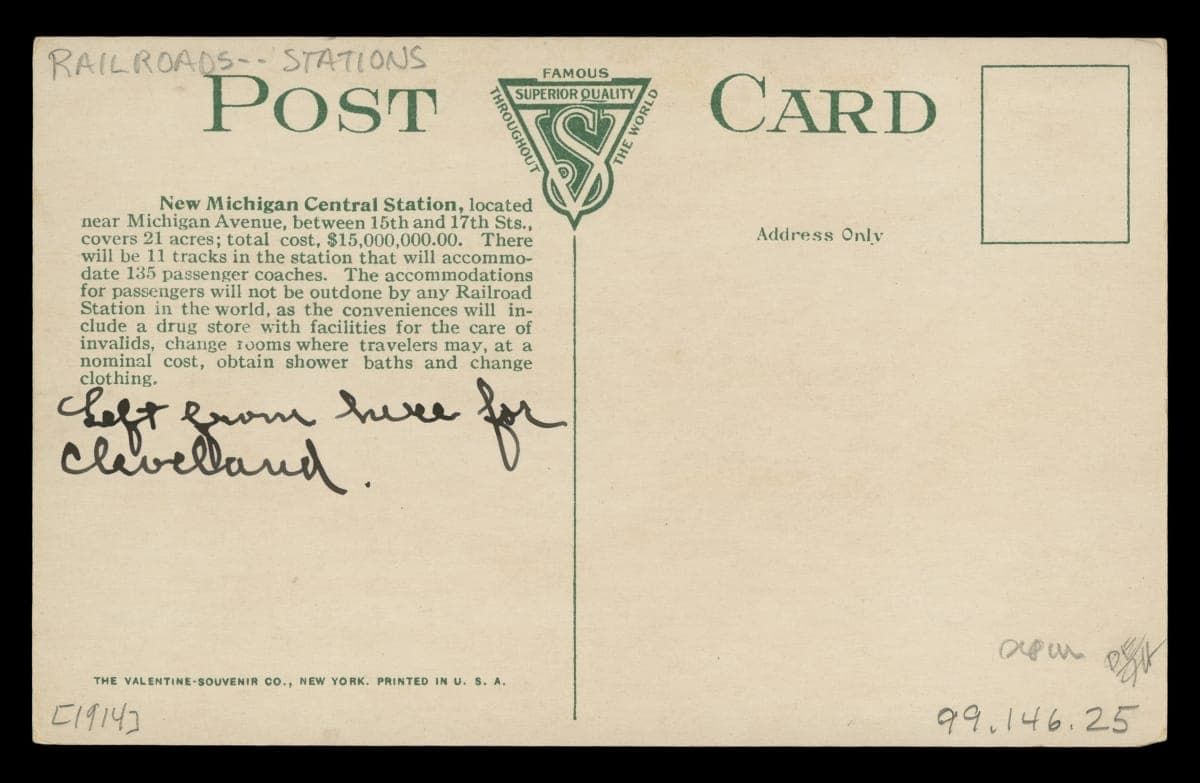 RAILROADS-- STATIONS
POST CARD
FAMOUS
SUPERIOR QUALITY
THROUGHOUT THE WORLD
VS
New Michigan Central Station, located
near Michigan Avenue, between 15th and 17th Sts.,
covers 21 acres; total cost, $15,000,000.00. There
will be 11 tracks in the station that will accommo-
date 135 passenger coaches. The accommodations
for passengers will not be outdone by any Railroad
Station in the world, as the conveniences will in-
clude a drug store with facilities for the care of
invalids, change rooms where travelers may, at a
nominal cost, obtain shower baths and change
clothing.
Left from here for
Cleveland.
Address Only
THE VALENTINE-SOUVENIR CO., NEW YORK. PRINTED IN U. S. A.
[1914]
99.146.25